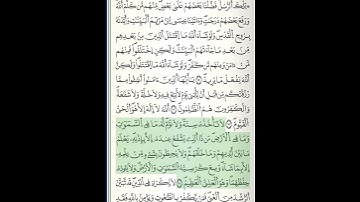 ۞تِلْكَ ٱلرُّسُلُ فَضَّلْنَا بَعْضَهُمْ عَلَىٰ بَعْضٍ مِّنْهُم مَّن كَلَّمَ ٱللَّهُ
وَرَفَعَ بَعْضَهُمْ دَرَجَٰتٍ وَءَاتَيْنَا عِيسَى ٱبْنَ مَرْيَمَ ٱلْبَيِّنَٰتِ وَأَيَّدْنَٰهُ
بِرُوحِ ٱلْقُدُسِ وَلَوْ شَآءَ ٱللَّهُ مَا ٱقْتَتَلَ ٱلَّذِينَ مِنۢ بَعْدِهِم
مِّنۢ بَعْدِ مَا جَآءَتْهُمُ ٱلْبَيِّنَٰتُ وَلَٰكِنِ ٱخْتَلَفُوا۟ فَمِنْهُم
مَّنْ ءَامَنَ وَمِنْهُم مَّن كَفَرَ وَلَوْ شَآءَ ٱللَّهُ مَا ٱقْتَتَلُوا۟ وَلَٰكِنَّ
ٱللَّهَ يَفْعَلُ مَا يُرِيدُ ۝ يَٰٓأَيُّهَا ٱلَّذِينَ ءَامَنُوٓا۟ أَنفِقُوا۟ مِمَّا
رَزَقْنَٰكُم مِّن قَبْلِ أَن يَأْتِىَ يَوْمٌ لَّا بَيْعٌ فِيهِ وَلَا خُلَّةٌ وَلَا شَفَٰعَةٌ
وَٱلْكَٰفِرُونَ هُمُ ٱلظَّٰلِمُونَ ۝ ٱللَّهُ لَآ إِلَٰهَ إِلَّا هُوَ ٱلْحَىُّ
ٱلْقَيُّومُ لَا تَأْخُذُهُۥ سِنَةٌ وَلَا نَوْمٌ لَّهُۥ مَا فِى ٱلسَّمَٰوَٰتِ
وَمَا فِى ٱلْأَرْضِ مَن ذَا ٱلَّذِى يَشْفَعُ عِندَهُۥٓ إِلَّا بِإِذْنِهِۦ يَعْلَمُ
مَا بَيْنَ أَيْدِيهِمْ وَمَا خَلْفَهُمْ وَلَا يُحِيطُونَ بِشَىْءٍ مِّنْ عِلْمِهِۦٓ
إِلَّا بِمَا شَآءَ وَسِعَ كُرْسِيُّهُ ٱلسَّمَٰوَٰتِ وَٱلْأَرْضَ وَلَا يَـُٔودُهُۥ
حِفْظُهُمَا وَهُوَ ٱلْعَلِىُّ ٱلْعَظِيمُ ۝ لَآ إِكْرَاهَ فِى ٱلدِّينِ قَد تَّبَيَّنَ
ٱلرُّشْدُ مِنَ ٱلْغَىِّ فَمَن يَكْفُرْ بِٱلطَّٰغُوتِ وَيُؤْمِنۢ بِٱللَّهِ فَقَدِ